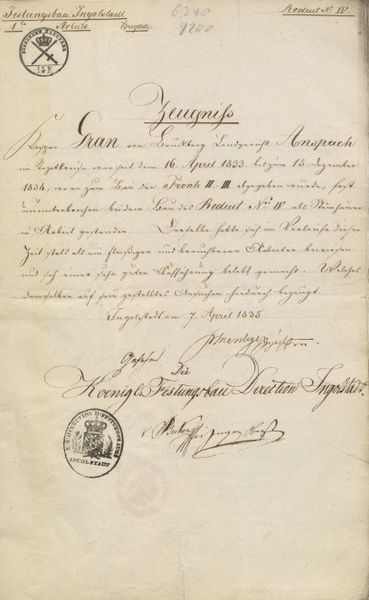 Festungsbau Ingolstadt
1te Arbeits Brigade
6340
9200
Reduit No. IV.
Zeugniss
Gran von Bruckberg Landgericht Anspach
im Rezatkreise von dem 16. April 1833 bis zum 15. Dezember
1834, wo er zum Bau der Fronte II-III abgegeben wurde, fast
ununterbrochen bei dem Bau des Reduit No. IV als
in Arbeit gestanden. Derselbe hatte sich im Verlaufe dieser
Zeit stets als ein fleißiger und brauchbarer Arbeiter bewiesen
und sich einer sehr guten Aufführung belobt gemacht. Welches
demselben auf sein gestelltes Ansuchen hiedurch bezeugt.
Ingolstadt am 7. April 1835
Gesehen
Die
Koenigl. Festungsbau Direction Ingolstadt.
INGOLSTADT